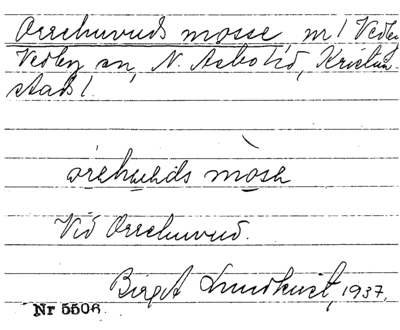 Orrehuvuds mosse m/ Vedby
Vedby sn, N. Åsbo hd, Kristian-
stads l.
òrehuvds mòse
Vid Orrehuvud.
Birgit Lundkvist, 1937.
Nr 5506